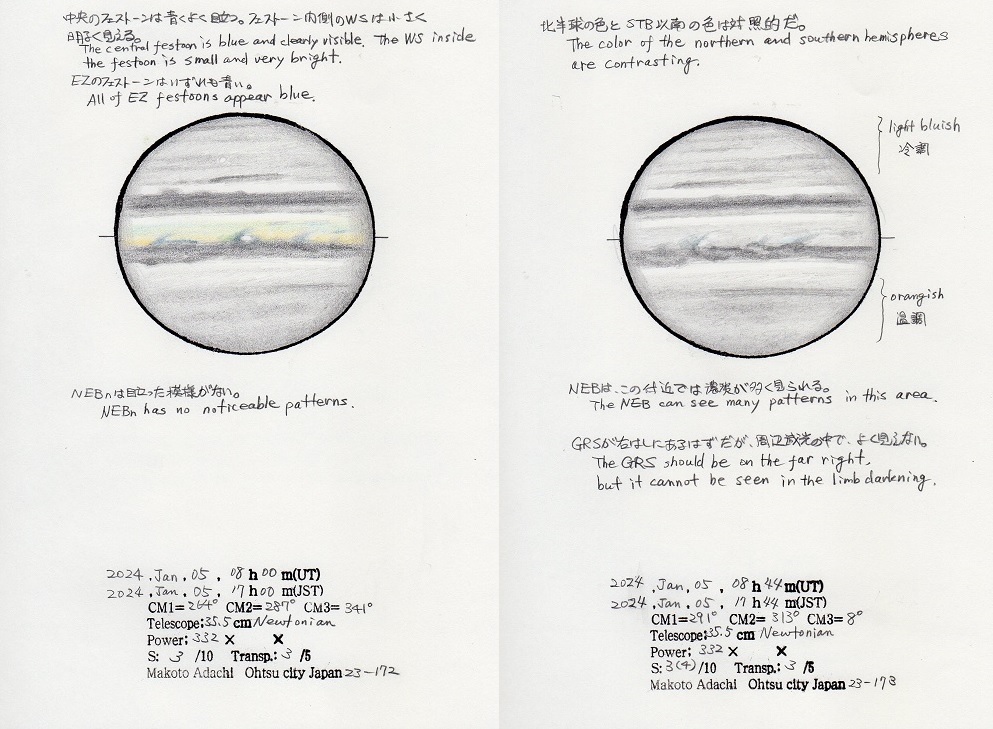 中央のフェストーンは青くよく目立つ。フェストーン内側のWSは小さく
明るく見える。
The central festoon is blue and clearly visible. The WS inside
the festoon is small and very bright.
EZのフェストーンはいずれも青い。
All of EZ festoons appear blue.
NEBnは目立った模様がない。
NEBn has no noticeable patterns.
2024 , Jan , 05 , 08 h 00 m(UT)
2024 , Jan , 05 , 17 h 00 m(JST)
CM1= 264° CM2= 287° CM3= 341°
Telescope; 35.5 cm Newtonian
Power; 332 × ×
S: 3 /10 Transp.: 3 /5
Makoto Adachi Ohtsu city Japan 23-172
北半球の色とSTB以南の色は対照的だ。
The color of the northern and southern hemispheres
are contrasting.
light bluish
冷調
orangish
温調
NEBは、この付近では濃淡が多く見られる。
The NEB can see many patterns in this area.
GRSが右はしにあるはずだが、周辺減光の中で、よく見えない。
The GRS should be on the far right,
but it cannot be seen in the limb darkening.
2024 , Jan , 05 , 08 h 44 m(UT)
2024 , Jan , 05 , 17 h 44 m(JST)
CM1= 291° CM2= 313° CM3= 8°
Telescope; 35.5 cm Newtonian
Power; 332 × ×
S: 3(4) /10 Transp.: 3 /5
Makoto Adachi Ohtsu city Japan 23-173